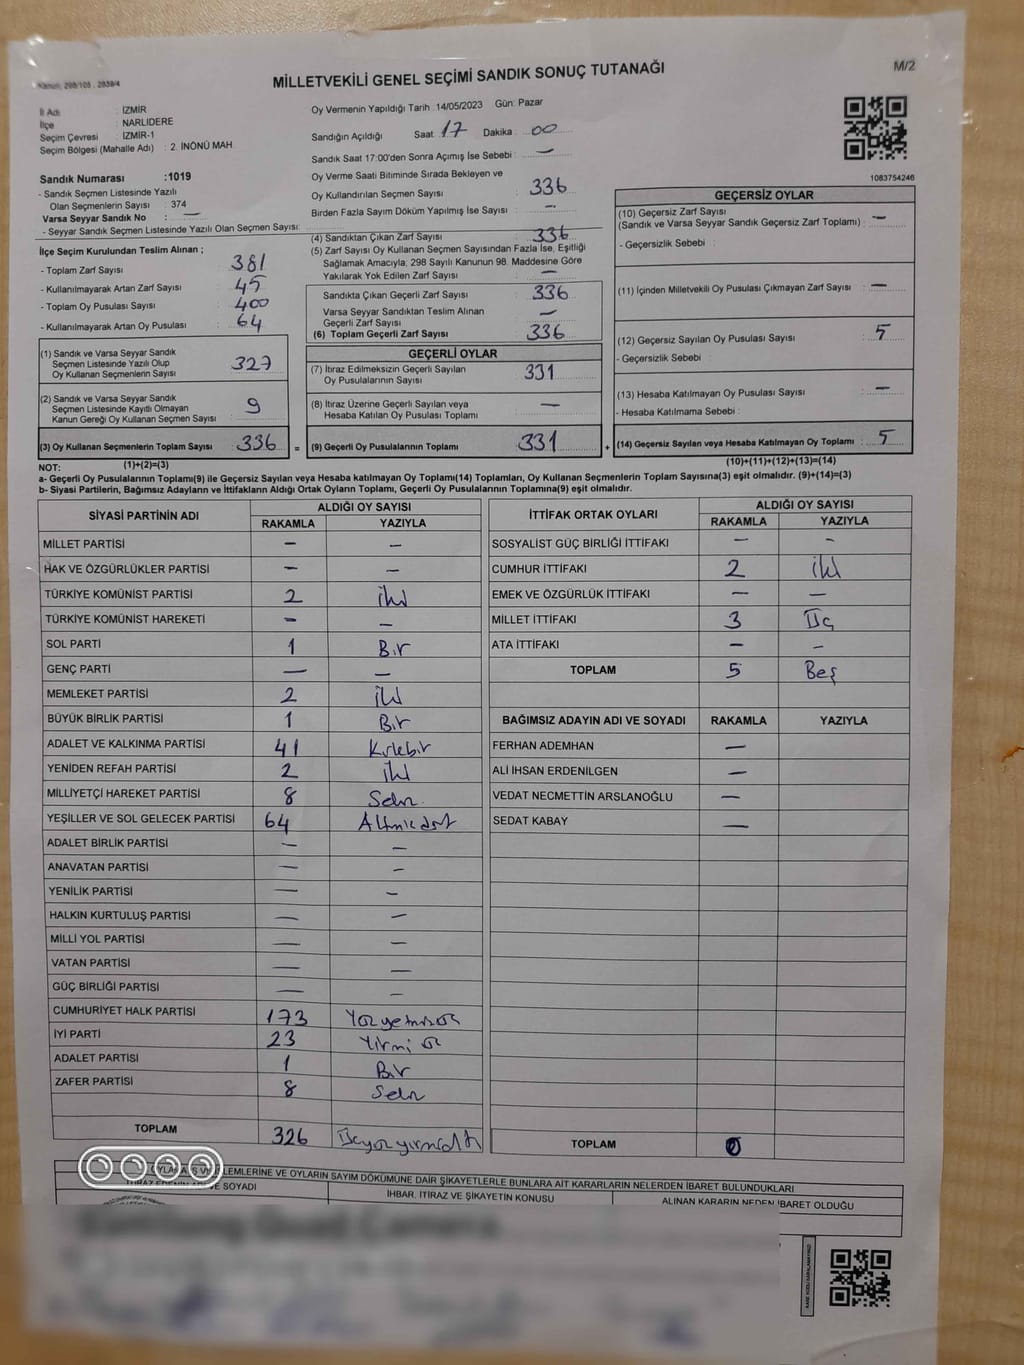 Kanun: 298/105 , 2839/4
MİLLETVEKİLİ GENEL SEÇİMİ SANDIK SONUÇ TUTANAĞI
M/2
İl Adı : İZMİR
İlçe : NARLIDERE
Seçim Çevresi : İZMİR-1
Seçim Bölgesi (Mahalle Adı) : 2. İNÖNÜ MAH.
Sandık Numarası :1019
- Sandık Seçmen Listesinde Yazılı
Olan Seçmenlerin Sayısı : 374
Varsa Seyyar Sandık No : —
- Seyyar Sandık Seçmen Listesinde Yazılı Olan Seçmen Sayısı:
Oy Vermenin Yapıldığı Tarih : 14/05/2023 Gün: Pazar
Sandığın Açıldığı Saat 17 Dakika : 00
Sandık Saat 17:00'den Sonra Açımış İse Sebebi : —
Oy Verme Saati Bitiminde Sırada Bekleyen ve
Oy Kullandırılan Seçmen Sayısı : 336
Birden Fazla Sayım Döküm Yapılmış İse Sayısı : —
1083754246
İlçe Seçim Kurulundan Teslim Alınan ;
- Toplam Zarf Sayısı : 381
- Kullanılmayarak Artan Zarf Sayısı : 45
- Toplam Oy Pusulası Sayısı : 400
- Kullanılmayarak Artan Oy Pusulası : 64
(1) Sandık ve Varsa Seyyar Sandık
Seçmen Listesinde Yazılı Olup
Oy Kullanan Seçmenlerin Sayısı : 327
(2) Sandık ve Varsa Seyyar Sandık
Seçmen Listesinde Kayıtlı Olmayan
Kanun Gereği Oy Kullanan Seçmen Sayısı : 9
(3) Oy Kullanan Seçmenlerin Toplam Sayısı : 336 =
(1)+(2)=(3)
(4) Sandıktan Çıkan Zarf Sayısı : 336
(5) Zarf Sayısı Oy Kullanan Seçmen Sayısından Fazla İse, Eşitliği
Sağlamak Amacıyla; 298 Sayılı Kanunun 98. Maddesine Göre
Yakılarak Yok Edilen Zarf Sayısı : —
Sandıkta Çıkan Geçerli Zarf Sayısı : 336
Varsa Seyyar Sandıktan Teslim Alınan
Geçerli Zarf Sayısı : —
(6) Toplam Geçerli Zarf Sayısı : 336
GEÇERLİ OYLAR
(7) İtiraz Edilmeksizin Geçerli Sayılan
Oy Pusulalarının Sayısı : 331
(8) İtiraz Üzerine Geçerli Sayılan veya
Hesaba Katılan Oy Pusulası Toplamı : —
(9) Geçerli Oy Pusulalarının Toplamı : 331 +
GEÇERSİZ OYLAR
(10) Geçersiz Zarf Sayısı
(Sandık ve Varsa Seyyar Sandık Geçersiz Zarf Toplamı) : —
- Geçersizlik Sebebi :
(11) İçinden Milletvekili Oy Pusulası Çıkmayan Zarf Sayısı : —
(12) Geçersiz Sayılan Oy Pusulası Sayısı : 5
- Geçersizlik Sebebi :
(13) Hesaba Katılmayan Oy Pusulası Sayısı : —
- Hesaba Katılmama Sebebi :
(14) Geçersiz Sayılan veya Hesaba Katılmayan Oy Toplamı : 5
(10)+(11)+(12)+(13)=(14)
NOT:
a- Geçerli Oy Pusulalarının Toplamı(9) ile Geçersiz Sayılan veya Hesaba katılmayan Oy Toplamı(14) Toplamları, Oy Kullanan Seçmenlerin Toplam Sayısına(3) eşit olmalıdır. (9)+(14)=(3)
b- Siyasi Partilerin, Bağımsız Adayların ve İttifakların Aldığı Ortak Oyların Toplamı, Geçerli Oy Pusulalarının Toplamına(9) eşit olmalıdır.
SİYASİ PARTİNİN ADI ALDIĞI OY SAYISI
RAKAMLA YAZIYLA
MİLLET PARTİSİ — —
HAK VE ÖZGÜRLÜKLER PARTİSİ — —
TÜRKİYE KOMÜNİST PARTİSİ 2 iki
TÜRKİYE KOMÜNİST HAREKETİ — —
SOL PARTİ 1 Bir
GENÇ PARTİ — —
MEMLEKET PARTİSİ 2 iki
BÜYÜK BİRLİK PARTİSİ 1 Bir
ADALET VE KALKINMA PARTİSİ 41 Kırkbir
YENİDEN REFAH PARTİSİ 2 iki
MİLLİYETÇİ HAREKET PARTİSİ 8 Sekiz
YEŞİLLER VE SOL GELECEK PARTİSİ 64 Altmışdört
ADALET BİRLİK PARTİSİ — —
ANAVATAN PARTİSİ — —
YENİLİK PARTİSİ — —
HALKIN KURTULUŞ PARTİSİ — —
MİLLİ YOL PARTİSİ — —
VATAN PARTİSİ — —
GÜÇ BİRLİĞİ PARTİSİ — —
CUMHURİYET HALK PARTİSİ 173 Yüzyetmişüç
İYİ PARTİ 23 Yirmi üç
ADALET PARTİSİ 1 Bir
ZAFER PARTİSİ 8 Sekiz
TOPLAM 326 Üçyüzyirmialtı
İTTİFAK ORTAK OYLARI ALDIĞI OY SAYISI
RAKAMLA YAZIYLA
SOSYALİST GÜÇ BİRLİĞİ İTTİFAKI — —
CUMHUR İTTİFAKI 2 iki
EMEK VE ÖZGÜRLÜK İTTİFAKI — —
MİLLET İTTİFAKI 3 Üç
ATA İTTİFAKI — —
TOPLAM 5 Beş
BAĞIMSIZ ADAYIN ADI VE SOYADI RAKAMLA YAZIYLA
FERHAN ADEMHAN —
ALİ İHSAN ERDENİLGEN —
VEDAT NECMETTİN ARSLANOĞLU —
SEDAT KABAY —
TOPLAM 0
İŞLEMLERİNE VE OYLARIN SAYIM DÖKÜMÜNE DAİR ŞİKAYETLERLE BUNLARA AİT KARARLARIN NELERDEN İBARET BULUNDUKLARI
VE SOYADI İHBAR, İTİRAZ VE ŞİKAYETİN KONUSU ALINAN KARARIN NEDEN İBARET OLDUĞU